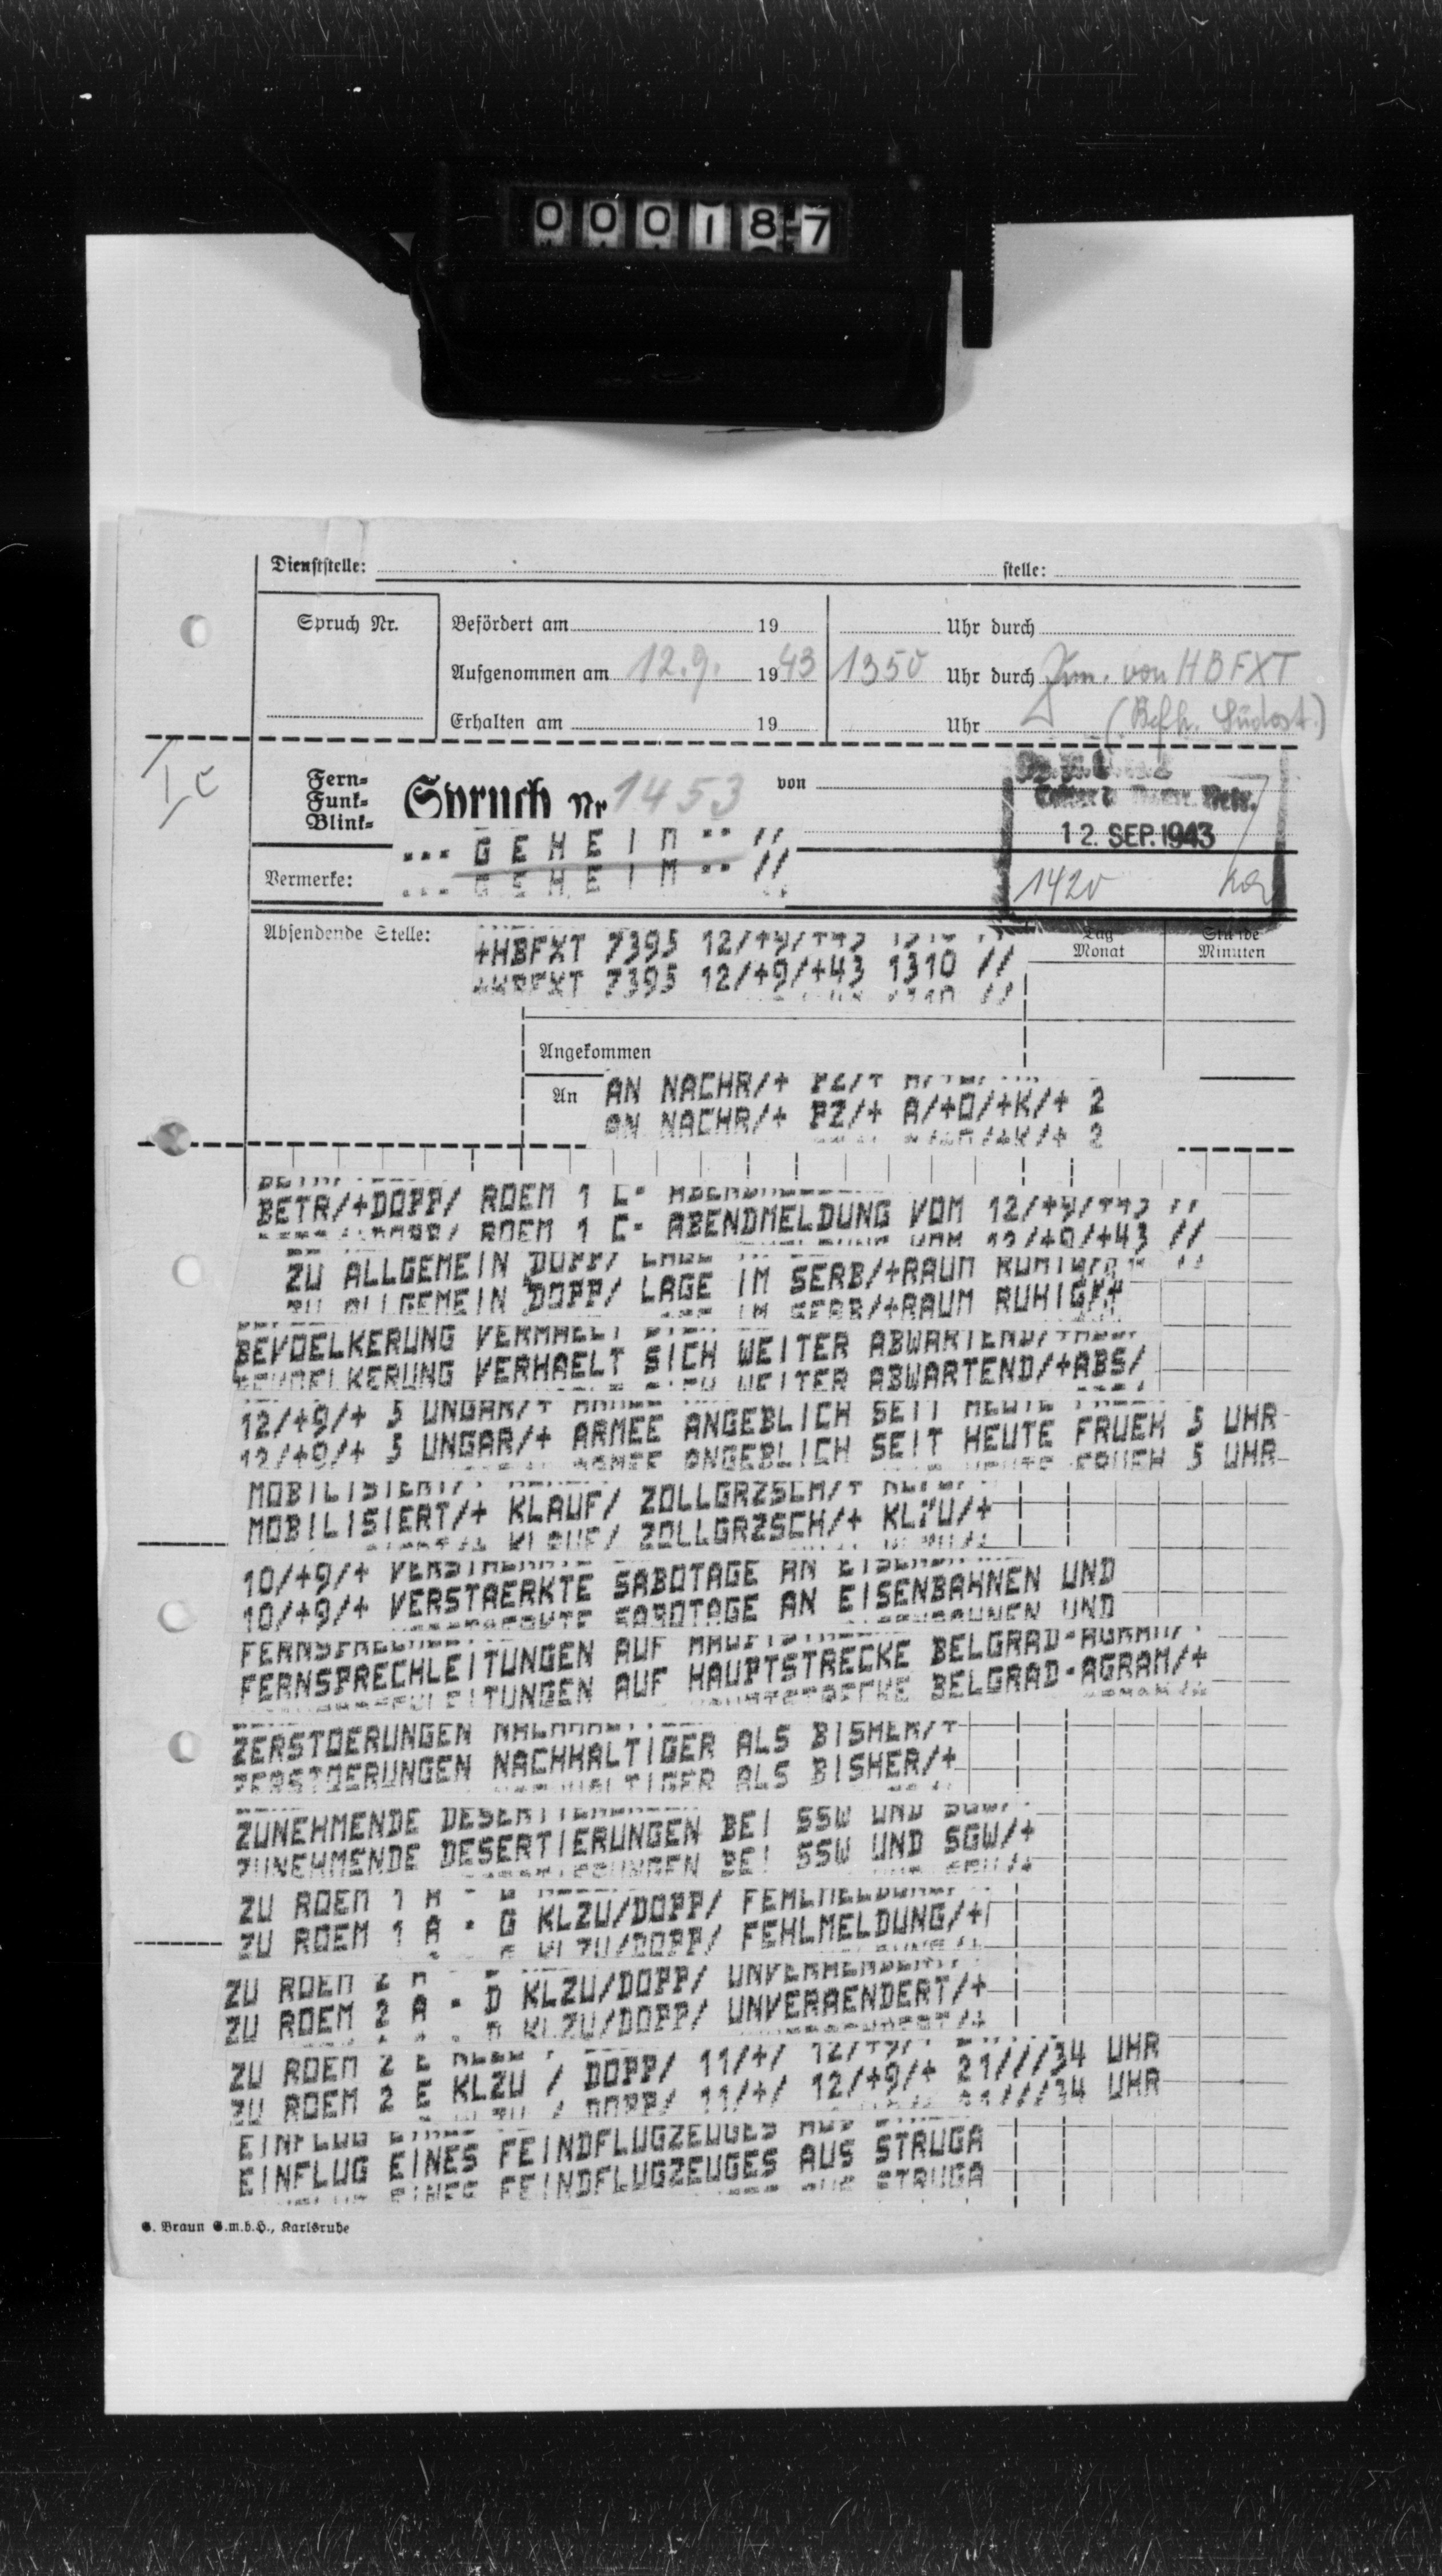 000187
Dienststelle: stelle:
Spruch Nr.
Befördert am 19 Uhr durch
Aufgenommen am 12.9. 1943 1350 Uhr durch von HBFXT
Erhalten am 19 Uhr (Befh. Südost.)
Ic
Fern-
Funk-
Blink-
Spruch Nr 1453 von
12. SEP. 1943
1420
Vermerke:
... G E H E I M .. //
Absendende Stelle:
+HBFXT 7395 12/+9/+43 1310 //
Tag
Monat
Stunde
Minuten
Angekommen
An
AN NACHR/+ PZ/+ A/+O/+K/+ 2
BETR/+DOPP/ ROEM 1 C- ABENDMELDUNG VOM 12/+9/+43 //
ZU ALLGEMEIN DOPP/ LAGE IM SERB/+RAUM RUHIG/+
BEVOELKERUNG VERHAELT SICH WEITER ABWARTEND/+ABS/
12/+9/+ 5 UNGAR/+ ARMEE ANGEBLICH SEIT HEUTE FRUEH 5 UHR
MOBILISIERT/+ KLAUF/ ZOLLGRZSCH/+ KLZU/+
10/+9/+ VERSTAERKTE SABOTAGE AN EISENBAHNEN UND
FERNSPRECHLEITUNGEN AUF HAUPTSTRECKE BELGRAD-AGRAM/+
ZERSTOERUNGEN NACHHALTIGER ALS BISHER/+
ZUNEHMENDE DESERTIERUNGEN BEI SSW UND SGW/+
ZU ROEM 1 A - G KLZU/DOPP/ FEHLMELDUNG/+
ZU ROEM 2 A - D KLZU/DOPP/ UNVERAENDERT/+
ZU ROEM 2 E KLZU / DOPP/ 11/+/ 12/+9/+ 21///34 UHR
EINFLUG EINES FEINDFLUGZEUGES AUS STRUGA
G. Braun G.m.b.H., Karlsruhe